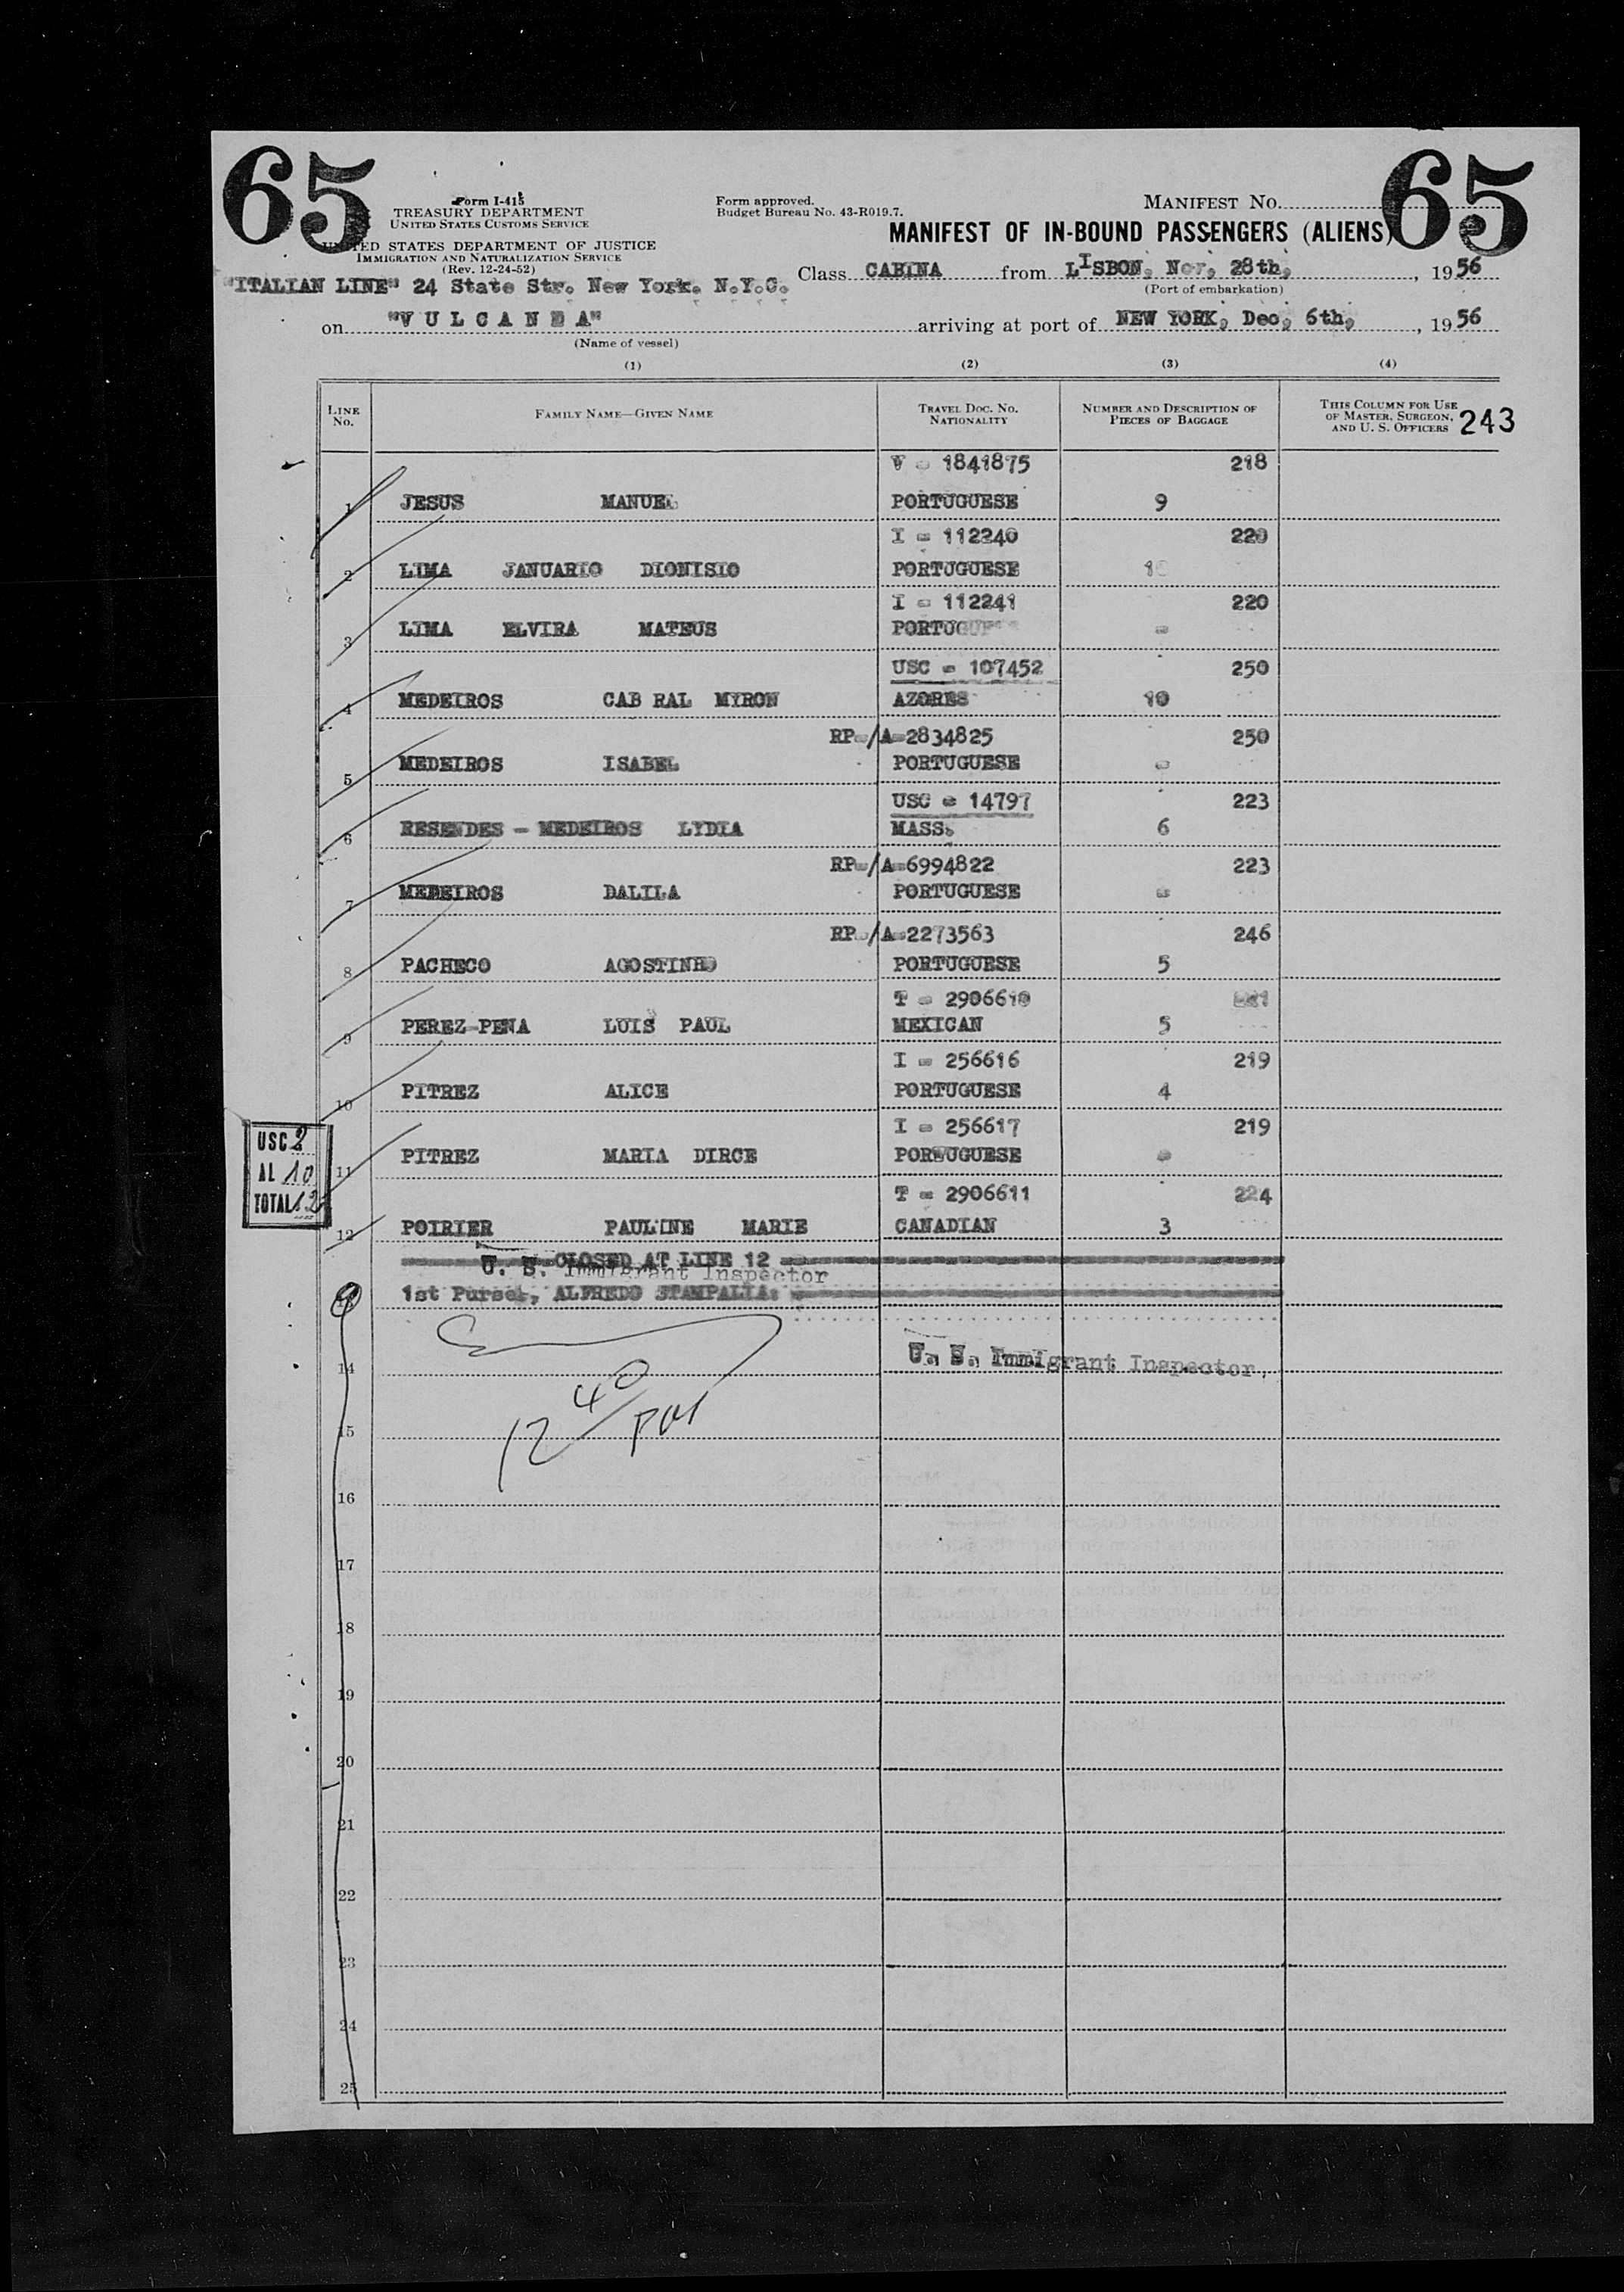 65
65
Form I-415
TREASURY DEPARTMENT
UNITED STATES CUSTOMS SERVICE
UNITED STATES DEPARTMENT OF JUSTICE
IMMIGRATION AND NATURALIZATION SERVICE
(Rev. 12-24-52)
Form approved.
Budget Bureau No. 43-R019.7.
MANIFEST NO.
MANIFEST OF IN-BOUND PASSENGERS (ALIENS)
"ITALIAN LINE" 24 State Str. New York. N.Y.C.
Class CABINA from LISBON, Nov, 28th, , 1956
(Port of embarkation)
on "VULCANIA" arriving at port of NEW YORK, Dec, 6th, , 1956
(Name of vessel)
(1) (2) (3) (4)
LINE NO. FAMILY NAME—GIVEN NAME TRAVEL DOC. NO. NATIONALITY NUMBER AND DESCRIPTION OF PIECES OF BAGGAGE THIS COLUMN FOR USE OF MASTER, SURGEON, AND U. S. OFFICERS 243
V - 1841875 218
1 JESUS MANUEL PORTUGUESE 9
I - 112240 220
2 LIMA JANUARIO DIONISIO PORTUGUESE
I - 112241 220
3 LIMA ELVIRA MATEUS PORTUGUESE -
USC - 107452 250
4 MEDEIROS CAB RAL MYRON AZORES 10
RP-/A-2834825 250
5 MEDEIROS ISABEL PORTUGUESE -
USC - 14797 223
6 RESENDES - MEDEIROS LYDIA MASS. 6
RP-/A-6994822 223
7 MEDEIROS DALILA PORTUGUESE -
RP-/A-2273563 246
8 PACHECO AGOSTINHO PORTUGUESE 5
T - 2906610
9 PEREZ-PENA LUIS PAUL MEXICAN 5
I - 256616 219
10 PITREZ ALICE PORTUGUESE 4
I - 256617 219
11 PITREZ MARIA DIRCE PORTUGUESE -
T - 2906611 224
12 POIRIER PAULINE MARIE CANADIAN 3
USC 2
AL 10
TOTAL 12
CLOSED AT LINE 12
U. S. Immigrant Inspector
1st Purser, ALFREDO STAMPALIA:
U. S. Immigrant Inspector,
14
12 40/
15
16
17
18
19
20
21
22
23
24
25